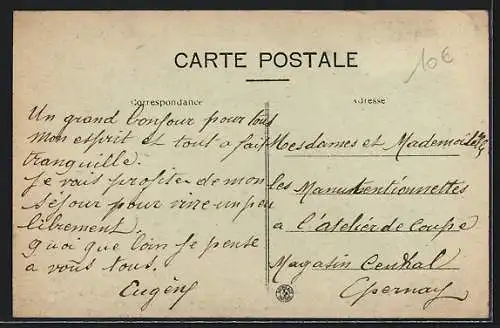 10€
CARTE POSTALE
Correspondance
Adresse
Un grand bonjour pour tous
Mon esprit et tout a fait
tranquille.
Je vais profiter de mon
séjour pour vivre un peu
librement.
Quoi que loin je pense
a vous tous.
Eugény
Mesdames et Mademoiselles
Les Manutentionnettes
a l'atelier de Coupe
Magasin Central
Epernay